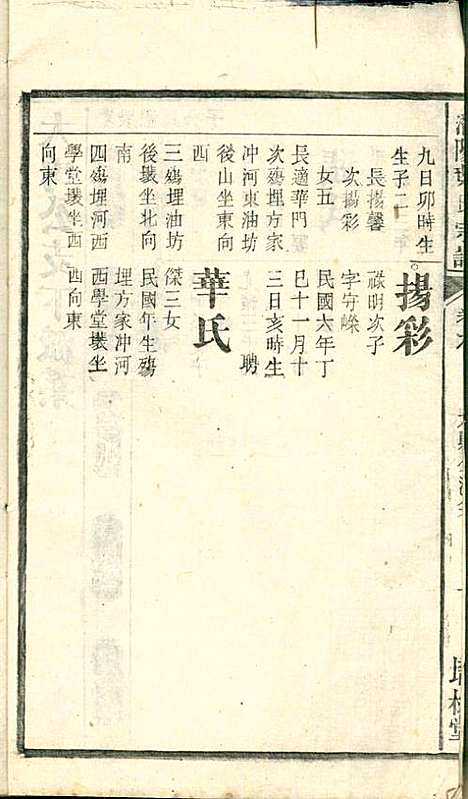 氏宗譜
九日卯時生
生子二
長揚馨
次揚彩
女五
長適華門
次殤埋方家
冲河東油坊
後山坐東向
西
三殤埋油坊
後塅坐北向
南
四殤埋河西
學堂塅坐西
向東
揚彩
祿明次子
字守嶸
民國六年丁
巳十一月十
三日亥時生
聘
華氏
傑三女
民國年生殤
埋方家冲河
西學堂塅坐
西向東